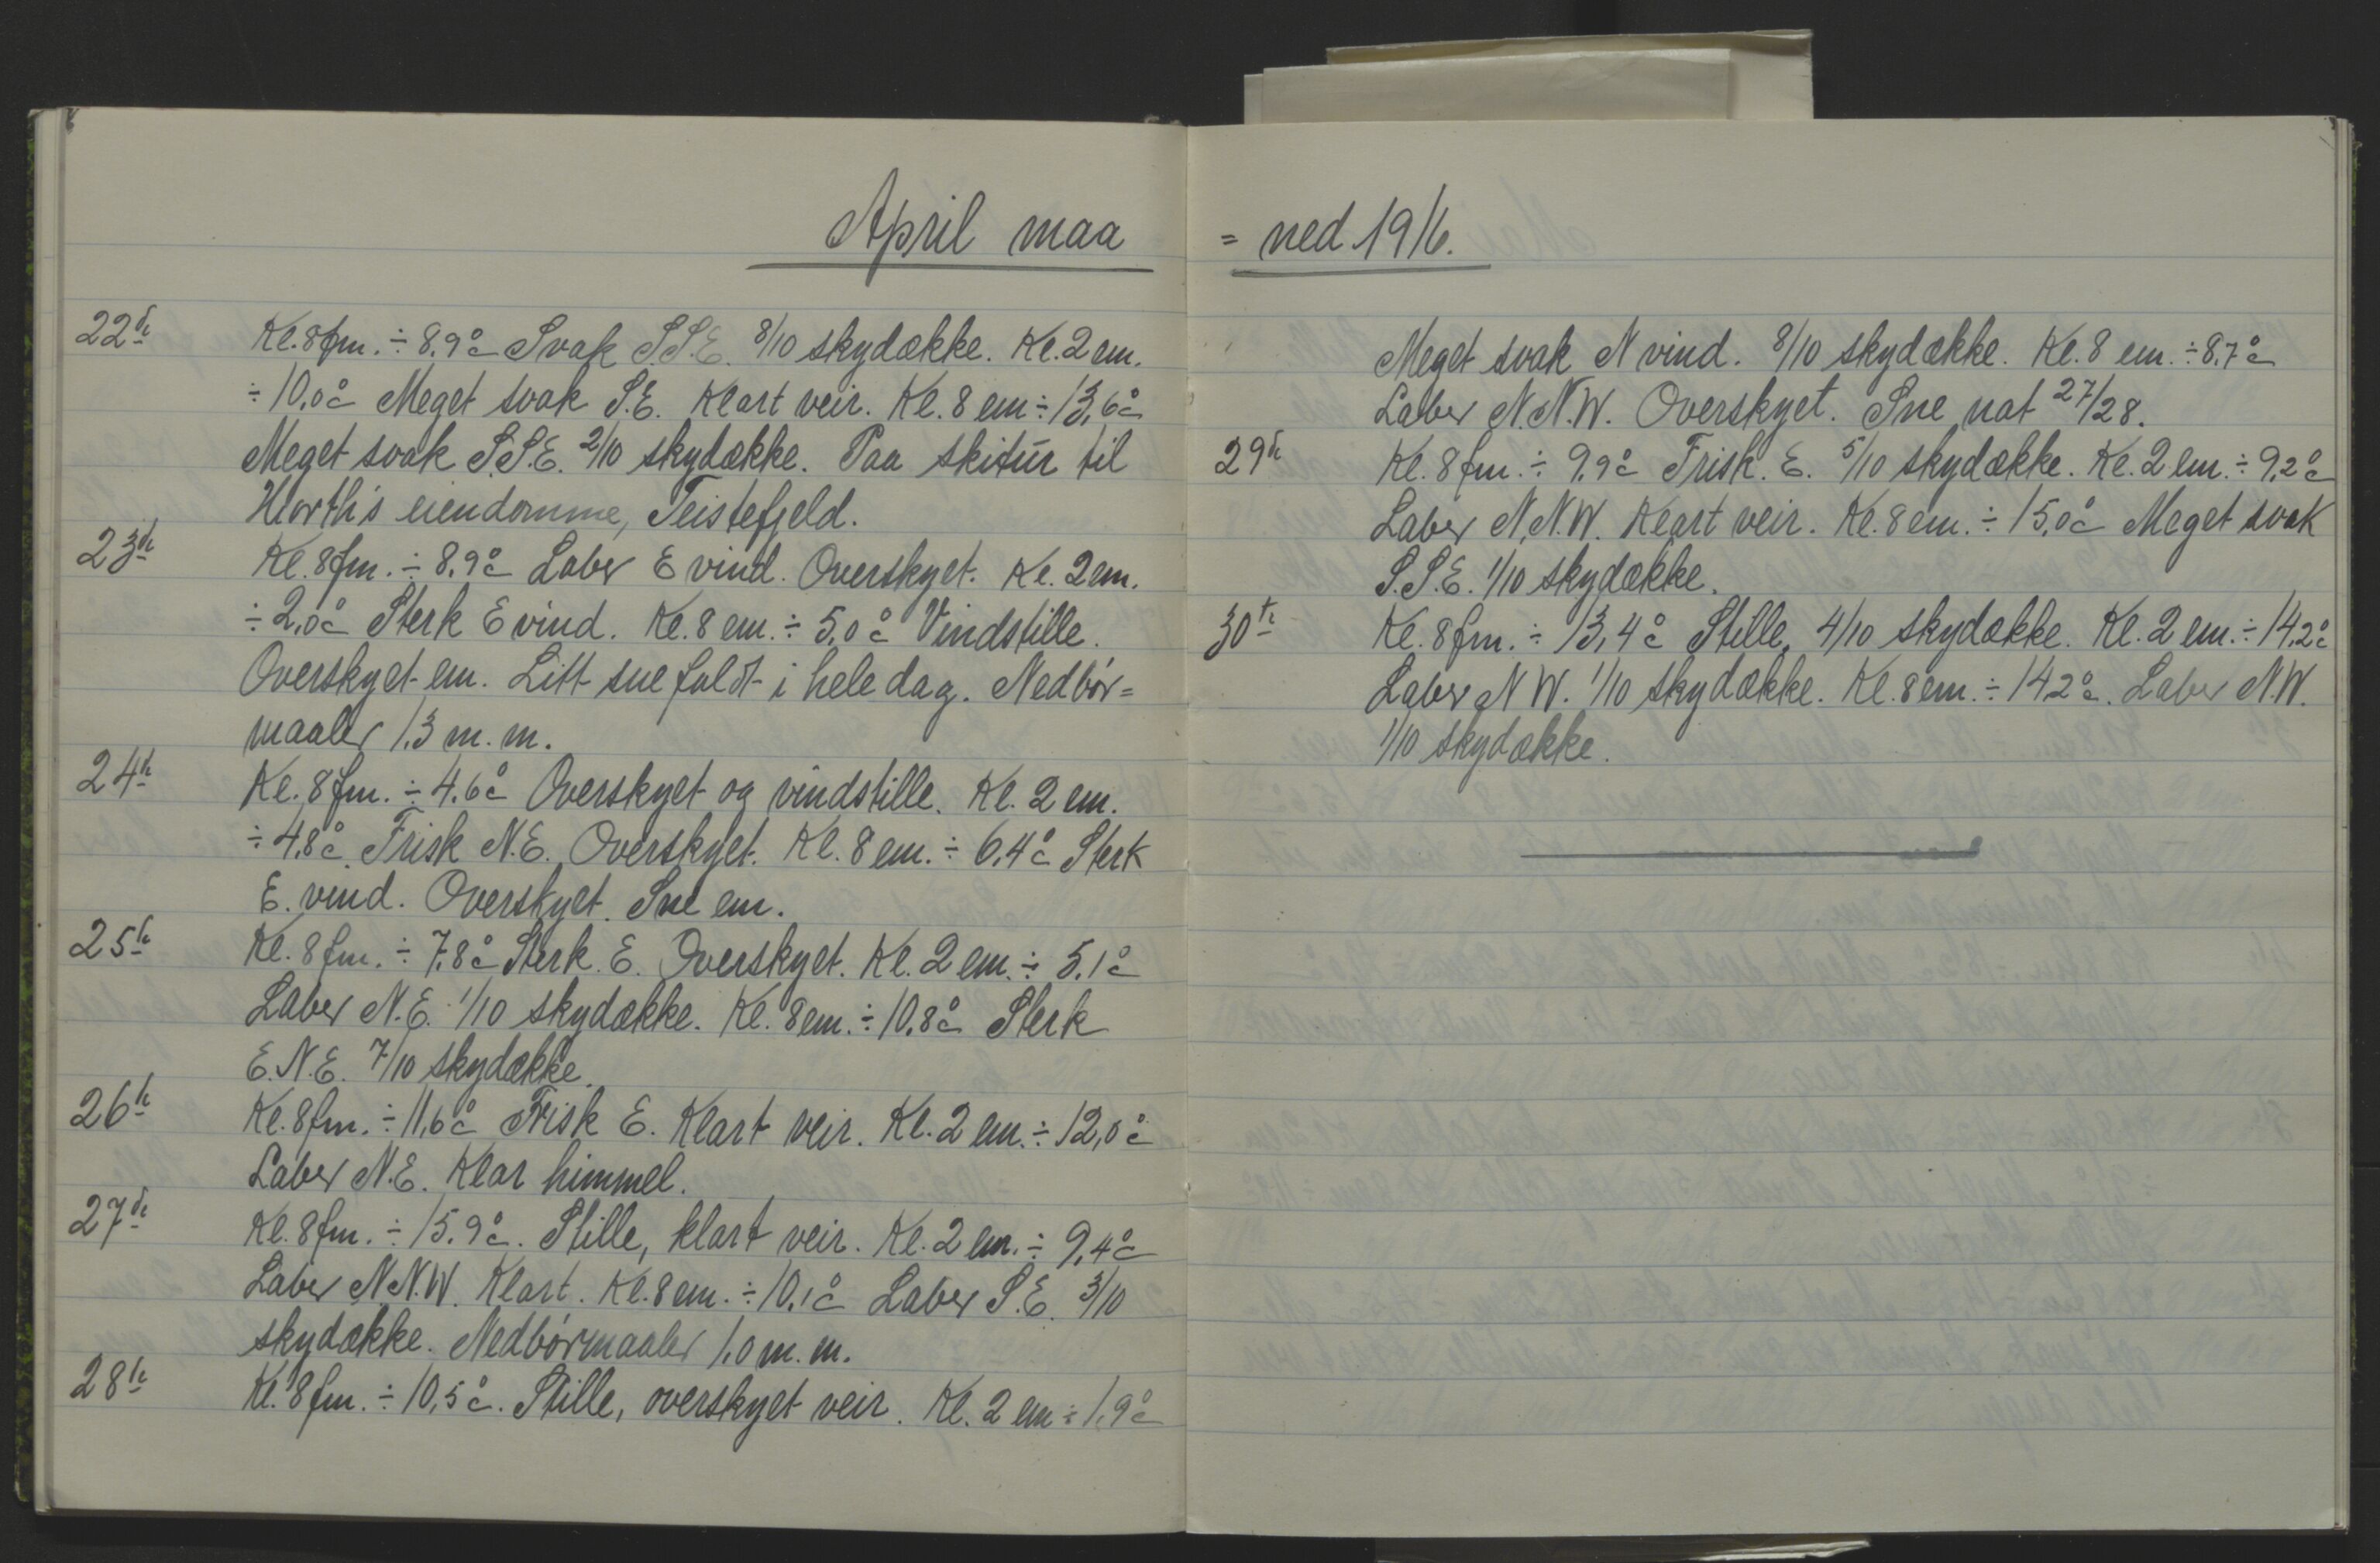 April maa
= ned 1916.
22de Kl. 8 fm. ÷ 8.9°c Svak S.S.E. 8/10 skydække. Kl. 2 em.
÷ 10,0°c Meget svak S.E. Klart veir. Kl. 8 em ÷ 13,6°c
Meget svak S.S.E. 2/10 skydække. Paa skitur til
eiendomme, Teistefjeld.
23de Kl. 8 fm. ÷ 8.9°c Laber E vind. Overskyet. Kl. 2 em.
÷ 2,0°c Sterk E vind. Kl. 8 em. ÷ 5,0°c Vindstille.
Overskyet em. Litt sne faldt i hele dag. Nedbør=
maaler 1.3 m.m.
24de Kl. 8 fm. ÷ 4.6°c Overskyet og vindstille. Kl. 2 em.
÷ 4,8°c. Frisk N.E. Overskyet. Kl. 8 em. ÷ 6,4°c Sterk
E. vind. Overskyet. Sne em.
25te Kl. 8 fm. ÷ 7,8°c Sterk E. Overskyet. Kl. 2 em. ÷ 5,1°c
Laber N.E. 1/10 skydække. Kl. 8 em. ÷ 10,8°c Sterk
E.N.E. 7/10 skydække.
26te Kl. 8 fm. ÷ 11,6°c Frisk E. Klart veir. Kl. 2 em. ÷ 12,0°c
Laber N.E. Klar himmel.
27de Kl. 8 fm. ÷ 15.9°c. Stille, klart veir. Kl. 2 em. ÷ 9,4°c
Laber N.N.W. Klart. Kl. 8 em. ÷ 10,1°c Laber S.E. 3/10
skydække. Nedbørmaaler 1,0 m.m.
28te Kl. 8 fm. ÷ 10,5°c. Stille, overskyet veir. Kl. 2 em ÷ 1,9°c
Meget svak N vind. 8/10 skydække. Kl. 8 em. ÷ 8,7°c
Laber N.N.W. Overskyet. Sne nat 27/28.
29de Kl. 8 fm. ÷ 9.9°c Frisk. E. 5/10 skydække. Kl. 2 em. ÷ 9,2°c
Laber N.N.W. Klart veir. Kl. 8 em. ÷ 15,0°c Meget svak
S.S.E. 1/10 skydække.
30te Kl. 8 fm. ÷ 13,4°c Stille, 4/10 skydække. Kl. 2 em. ÷ 14,2°c
Laber N W. 1/10 skydække. Kl. 8 em. ÷ 14,2°c. Laber N.W.
1/10 skydække.